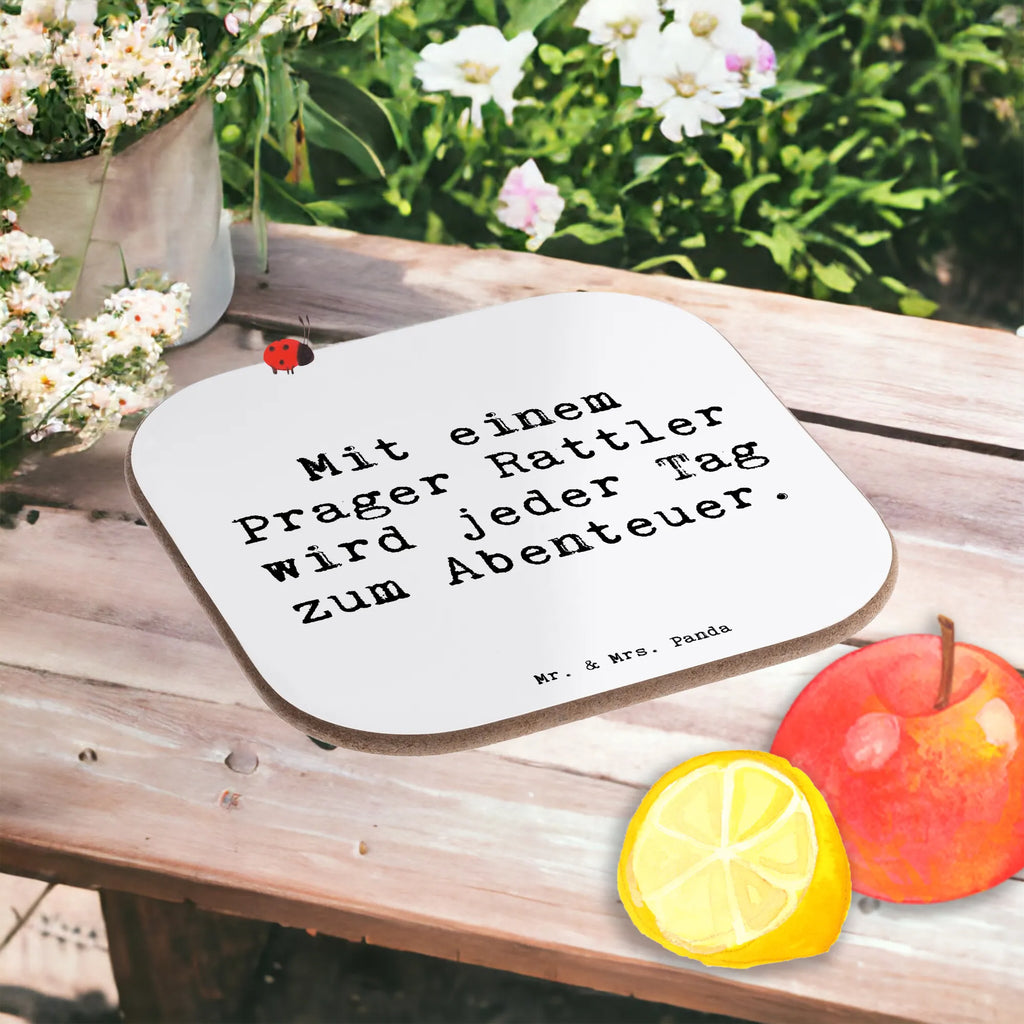 Mit einem
Prager Rattler
wird jeder Tag
zum Abenteuer.
Mr. & Mrs. Panda